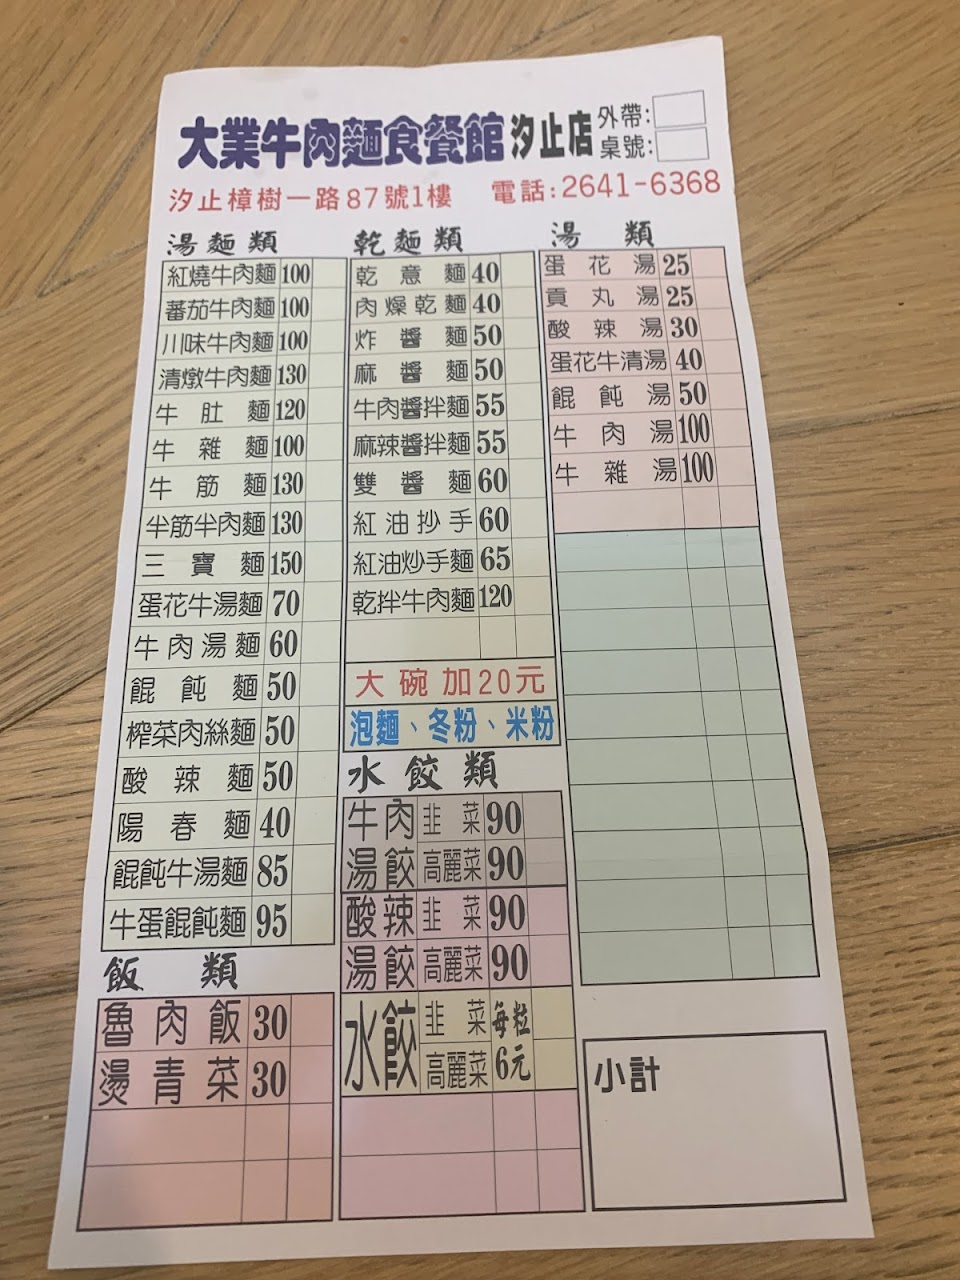 大業牛肉麵食餐館 汐止店
外帶:
桌號:
汐止樟樹一路87號1樓 電話:2641-6368
湯麵類
紅燒牛肉麵 100
蕃茄牛肉麵 100
川味牛肉麵 100
清燉牛肉麵 130
牛肚麵 120
牛雜麵 100
牛筋麵 130
半筋半肉麵 130
三寶麵 150
蛋花牛湯麵 70
牛肉湯麵 60
餛飩麵 50
榨菜肉絲麵 50
酸辣麵 50
陽春麵 40
餛飩牛湯麵 85
牛蛋餛飩麵 95
飯類
魯肉飯 30
燙青菜 30
乾麵類
乾意麵 40
肉燥乾麵 40
炸醬麵 50
麻醬麵 50
牛肉醬拌麵 55
麻辣醬拌麵 55
雙醬麵 60
紅油抄手 60
紅油炒手麵 65
乾拌牛肉麵 120
大碗加20元
泡麵、冬粉、米粉
水餃類
牛肉湯餃 韭菜 90
高麗菜 90
酸辣湯餃 韭菜 90
高麗菜 90
水餃 韭菜 每粒6元
高麗菜
湯類
蛋花湯 25
貢丸湯 25
酸辣湯 30
蛋花牛清湯 40
餛飩湯 50
牛肉湯 100
牛雜湯 100
小計